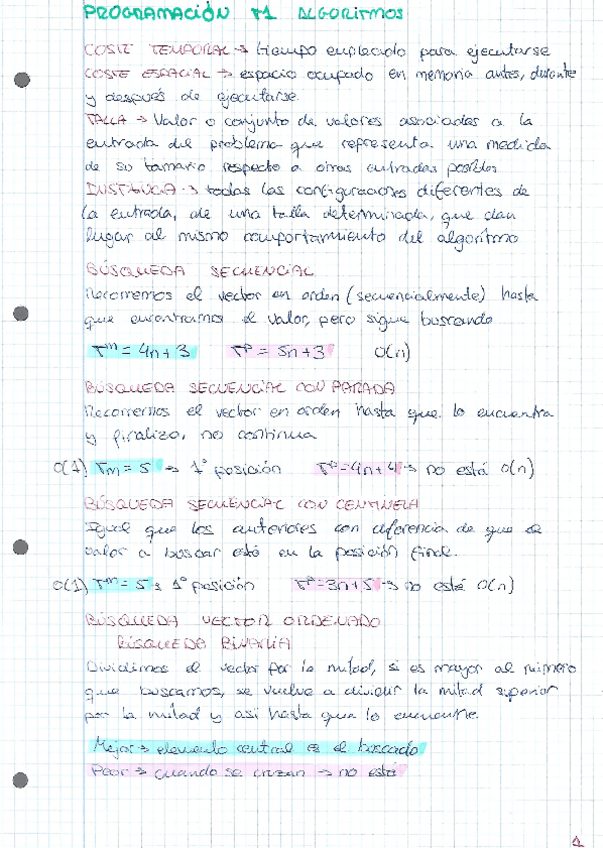 PROGRAMACIÓN T1 ALGORITMOS
COSTE TEMPORAL → tiempo empleado para ejecutarse
COSTE ESPACIAL → espacio ocupado en memoria antes, durante
y después de ejecutarse
TALLA → Valor o conjunto de valores asociados a la
entrada del problema que representa una medida
de su tamaño respecto a otras entradas posibles
INSTANCIA → todas las configuraciones diferentes de
la entrada, de una talla determinada, que dan
lugar al mismo comportamiento del algoritmo
BÚSQUEDA SECUENCIAL
Recorremos el vector en orden (secuencialmente) hasta
que encontramos el valor, pero sigue buscando
Tᵐ = 4n+3 Tᵖ = 5n+3 O(n)
BÚSQUEDA SECUENCIAL CON PARADA
Recorremos el vector en orden hasta que lo encuentra
y finaliza, no continua
O(1) Tm = 5 → 1° posición Tᵖ=4n+4 → no está O(n)
BÚSQUEDA SECUENCIAL CON CENTINELA
Igual que los anteriores con diferencia de que el
valor a buscar está en la posición final.
O(1) Tᵐ = 5 → 1° posición Tᵖ=3n+5 → no está O(n)
BÚSQUEDA VECTOR ORDENADO
BÚSQUEDA BINARIA
Dividimos el vector por la mitad, si es mayor al número
que buscamos, se vuelve a dividir la mitad superior
por la mitad y asi hasta que lo encuentre.
Mejor → elemento central es el buscado
Peor → cuando se cruzan → no está
1